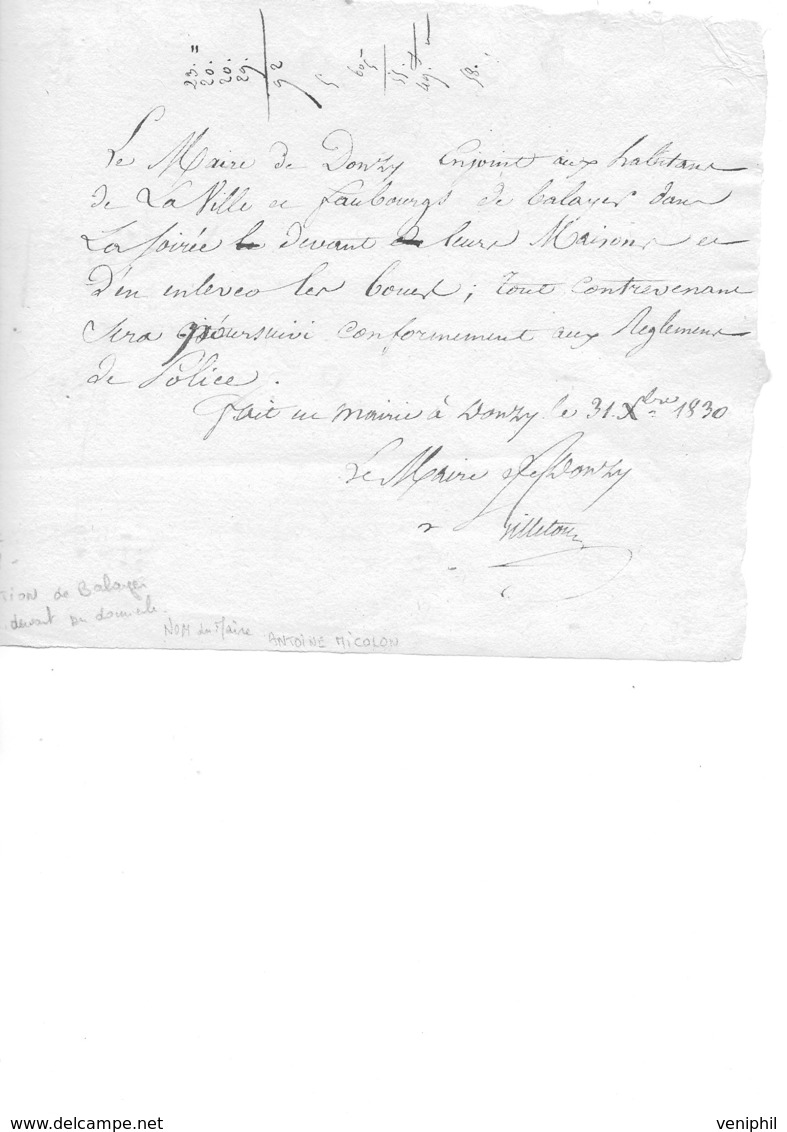 23."
20.
20.
29.
92
5
605
55.
49.
58.
Le Maire de Donzy Enjoint aux habitans
de La Ville et faubourgs de balayer dans
La soirée devant leurs Maisons et
D'en enlever les boues; tout contrevenant
sera poursuivi conformement aux Reglemens
de Police.
fait en mairie à Donzy le 31 Xbre 1830
Le Maire de Donzy
tion de Balayer
devant domicile.
NOM du Maire ANTOINE MICOLON
veniphil